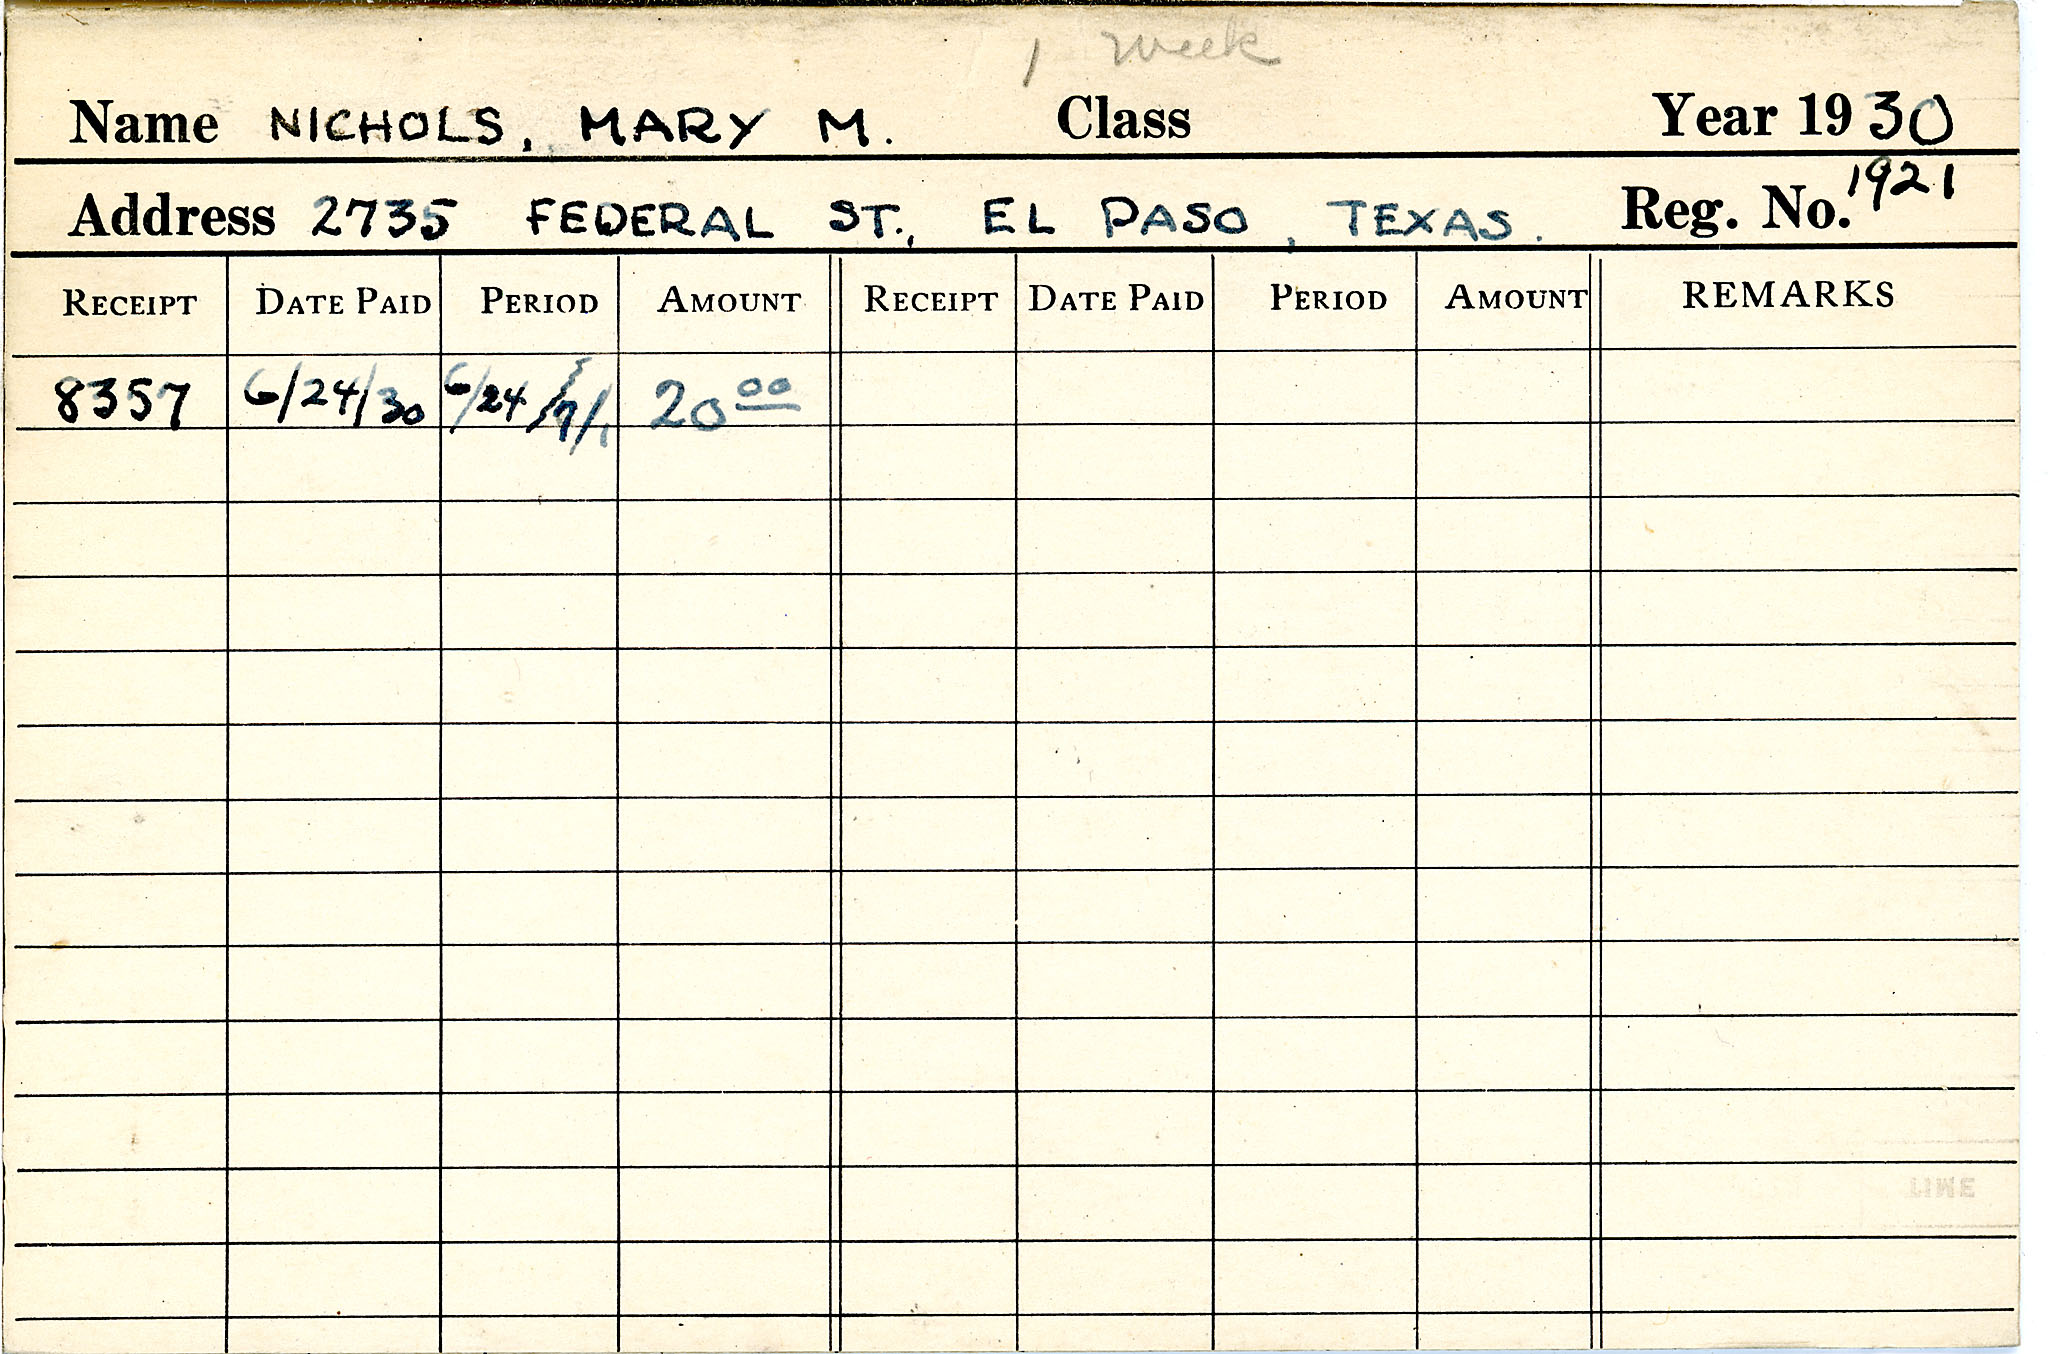 1 Week
Name NICHOLS, MARY M. Class Year 1930
Address 2735 FEDERAL ST., EL PASO, TEXAS. Reg. No. 1921
RECEIPT DATE PAID PERIOD AMOUNT RECEIPT DATE PAID PERIOD AMOUNT REMARKS
8357 6/24/30 6/24 / 7/1 20 00
TIME